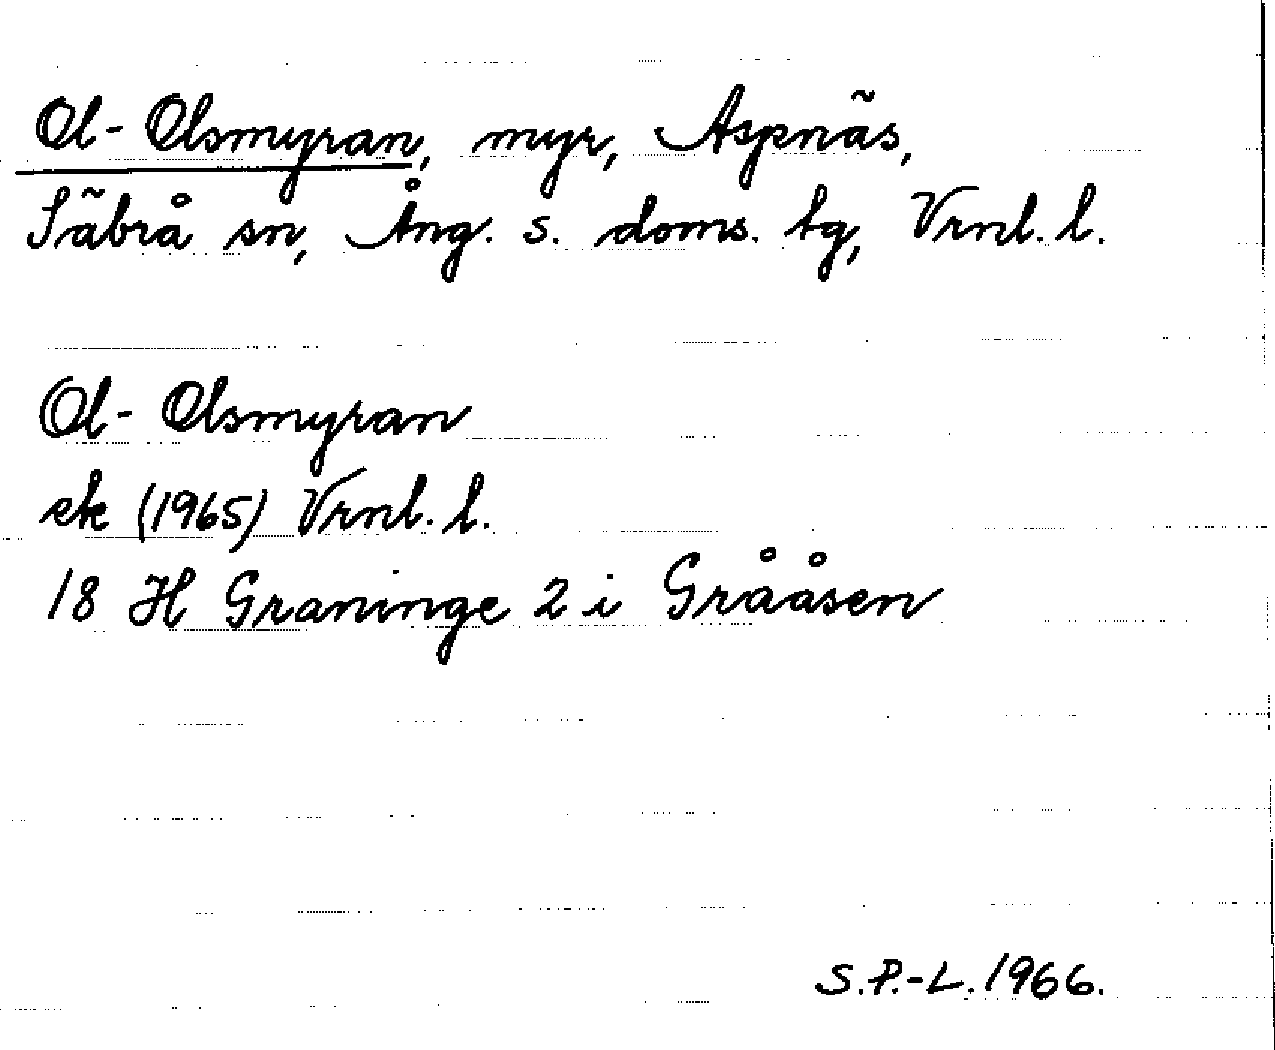 Ol-Olsmyran, myr, Aspnäs,
Säbrå sn, Ång. s. doms. tg, Vrnl. l.
Ol-Olsmyran
ek (1965) Vrnl. l.
18 H Graninge 2 i Grååsen
S.P.-L. 1966.